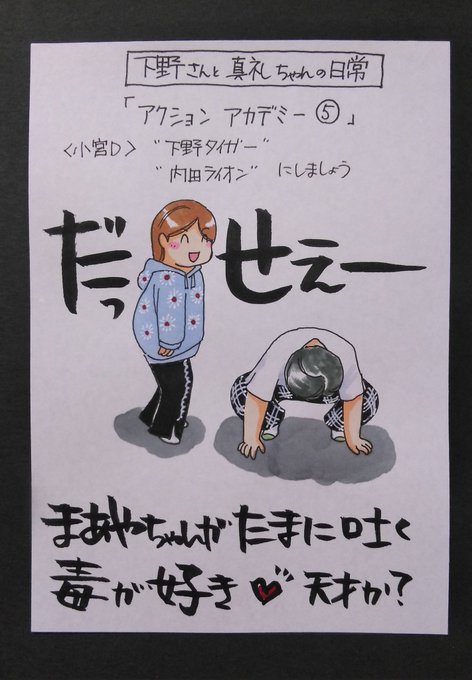 下野さんと真礼ちゃんの日常
「アクション アカデミー⑤」
<小宮D> "下野タイガー"
"内田ライオン" にしましょう
だっせぇー
まあやちゃんがたまに吐く
毒が好き♥ 天才か?